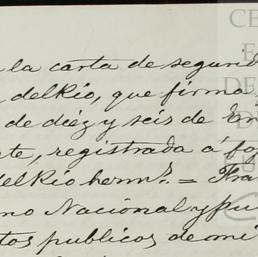 la carta de segund
delRío, que firma
de diéz y seis de En
te, registrada á foj
delRío hermº. = Fra
mo Nacional y pu
tos publicos de mi